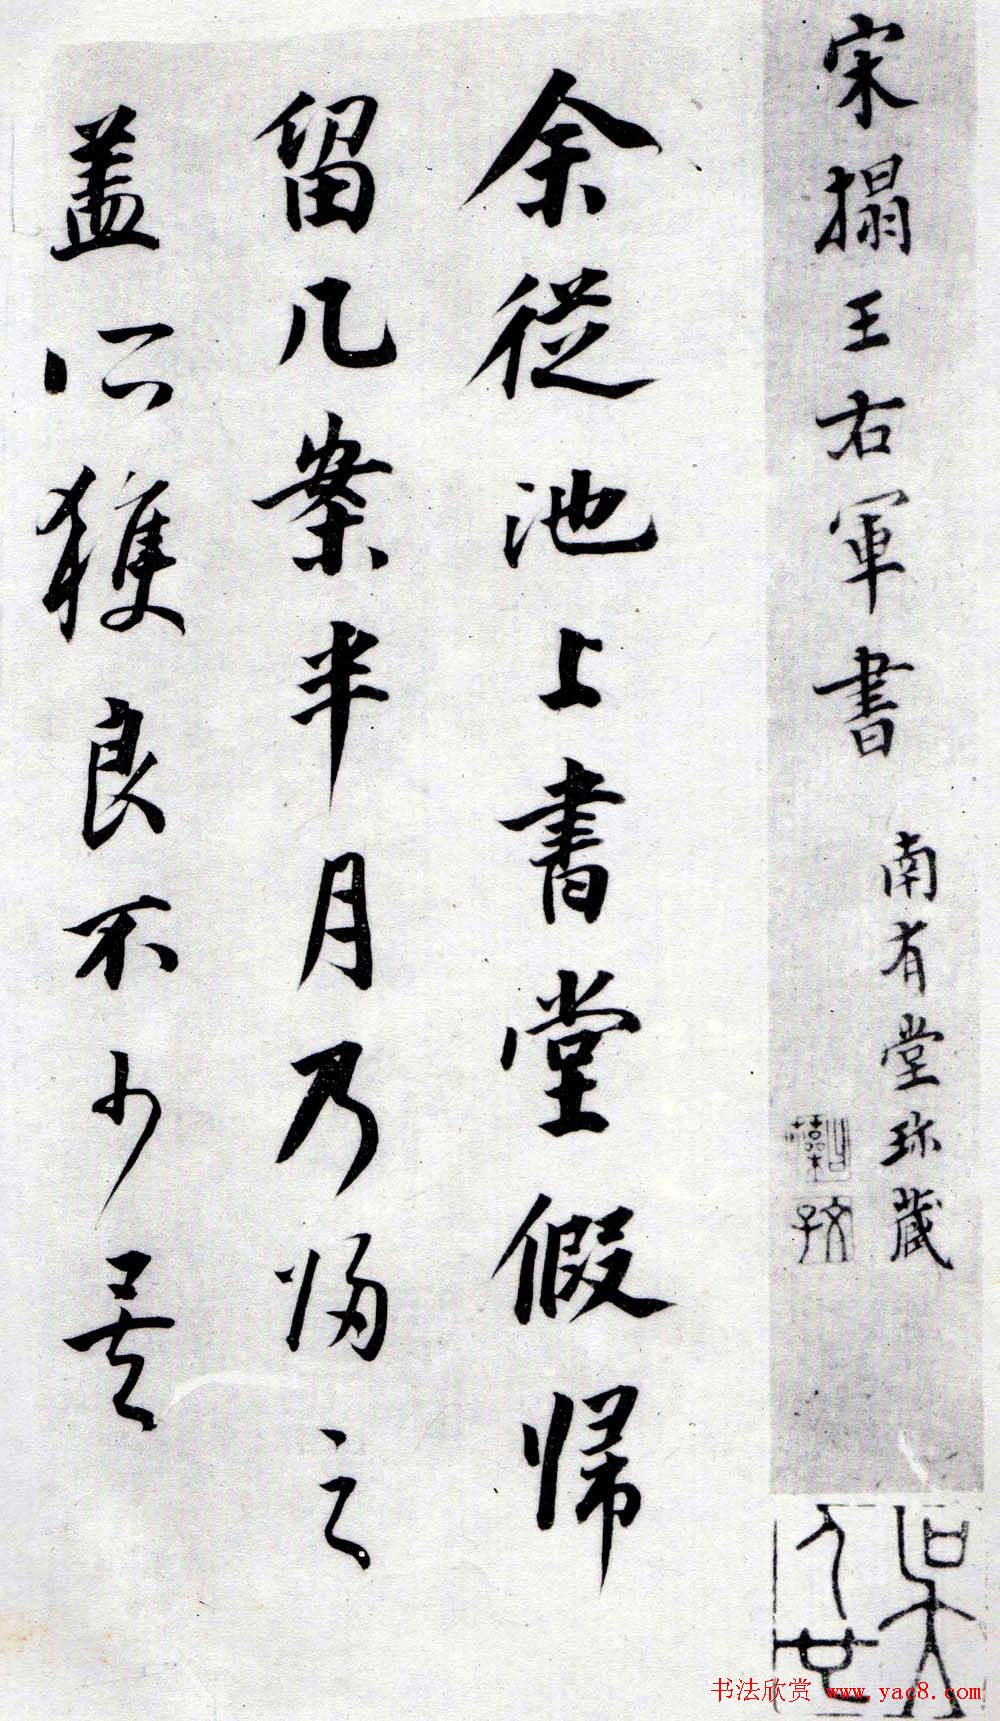 宋搨王右軍書
南有堂珎藏
余從池上書堂假帰
留几案半月乃歸之
盖所獲良不少矣
书法欣赏 www.yac8.com